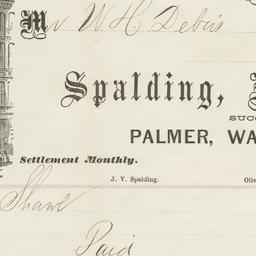 Mr W. H. Debois
Spalding,
SUCC
PALMER, WA
Settlement Monthly.
J. V. Spalding. Oliv
Shawl
Paid